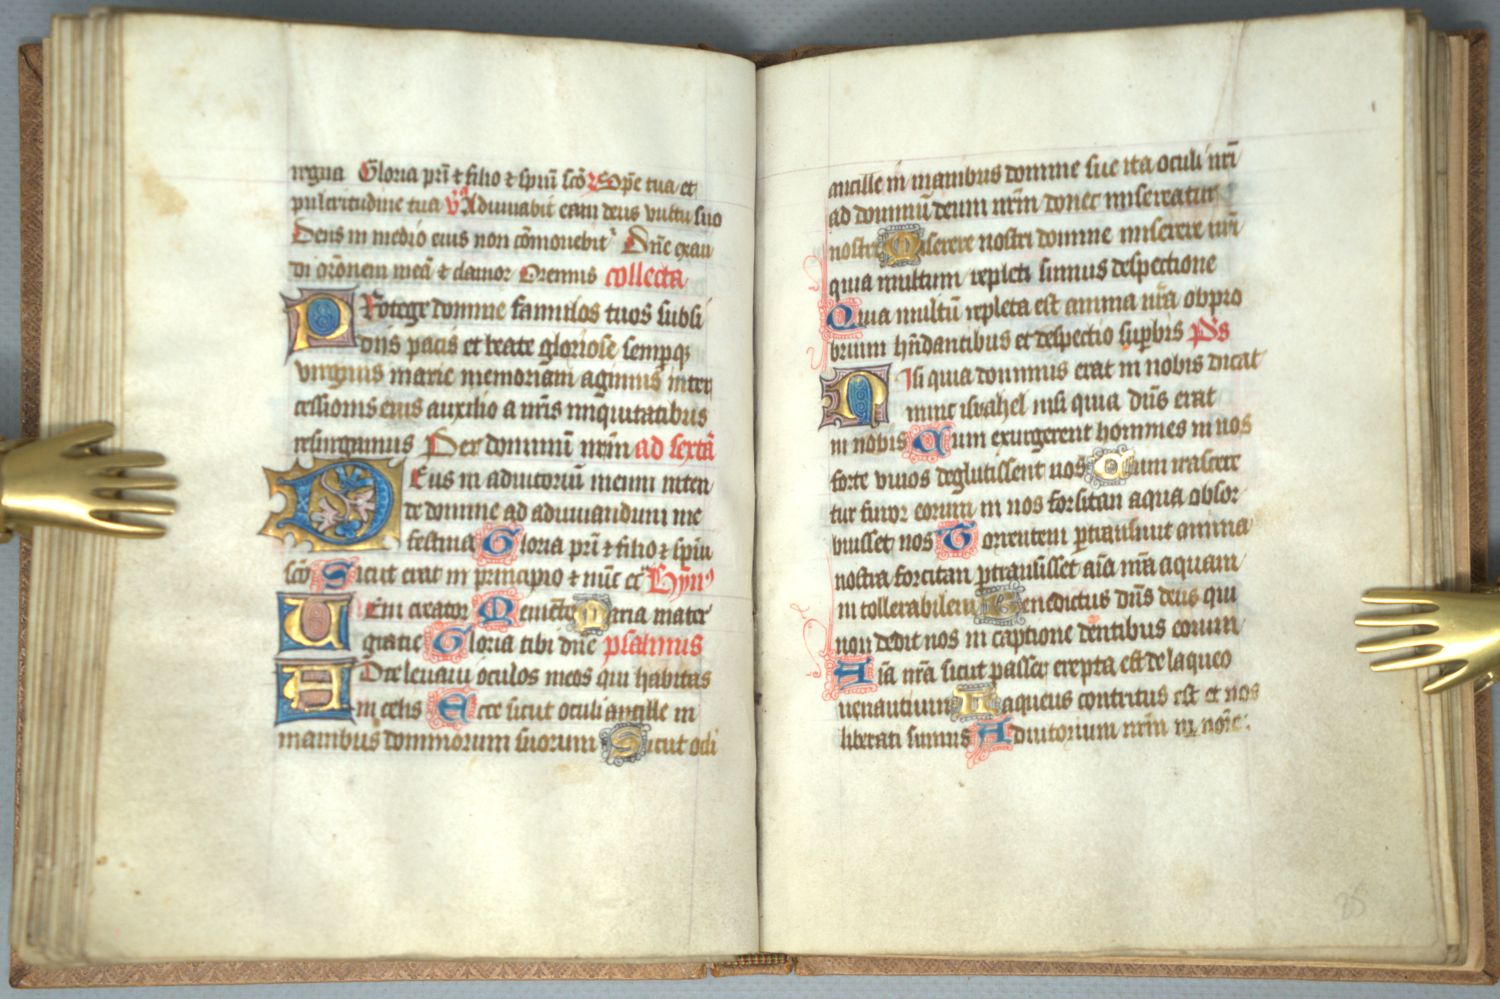 regna Gloria pri̅ ⁊ filio ⁊ spiui̅ sco̅ Spe̅ tua et
pulcritudine tua Adiuuabit eam deus vultu suo
Deus in medio eius non co̅mouebit᷑ Dn̅e exau
di oro̅nem mea̅ ⁊ clamor Oremus collecta
Protege domine famulos tuos subsi
diis pacis et beate gloriose semperqꝫ
virginis marie memoriam agimus inter
cessionis eius auxilio a nr̅is iniquitatibus
resurgamus Per dominu̅ nr̅m ad sexta̅
Deus in adiutoriu̅ meum inten
de domine ad adiuuandum me
festina Gloria pri̅ ⁊ filio ⁊ spiu̅
sco̅ Sicut erat in principio ⁊ nu̅c ec̅ Hymꝰ
Ueni creator Meme̅to Maria mater
gratie Gloria tibi dn̅e psalmus
Ad te leuaui oculos meos qui habitas
in celis Ecce sicut oculi ancille in
manibus dominorum suorum Sicut ocli
ancille in manibus domine sue ita oculi nr̅i
ad dominu̅ deum nr̅m donec misereatur
nostri Miserere nostri domine miserere nr̅i
quia multum repleti sumus despectione
Quia multu̅ repleta est anima nr̅a obpro
brium hu̅dantibus et despectio sup̱bis Ps
Nisi quia dominus erat in nobis dicat
nunc israhel nisi quia dn̅s erat
in nobis Cum exurgerent homines in nos
forte viuos deglutissent nos Cum irascere
tur furor eorum in nos forsitan aqua obsor
buisset nos Torrentem p̱transiuit anima
nostra forcitan p̱transisset ai̅a nr̅a aquam
in tollerabilem Benedictus dn̅s deus qui
non dedit nos in captione dentibus eorum
Ai̅a nr̅a sicut passer erepta est de laqueo
uenantium Laqueus contritus est et nos
liberati sumus Adiutorium nr̅m in no̅ie
35